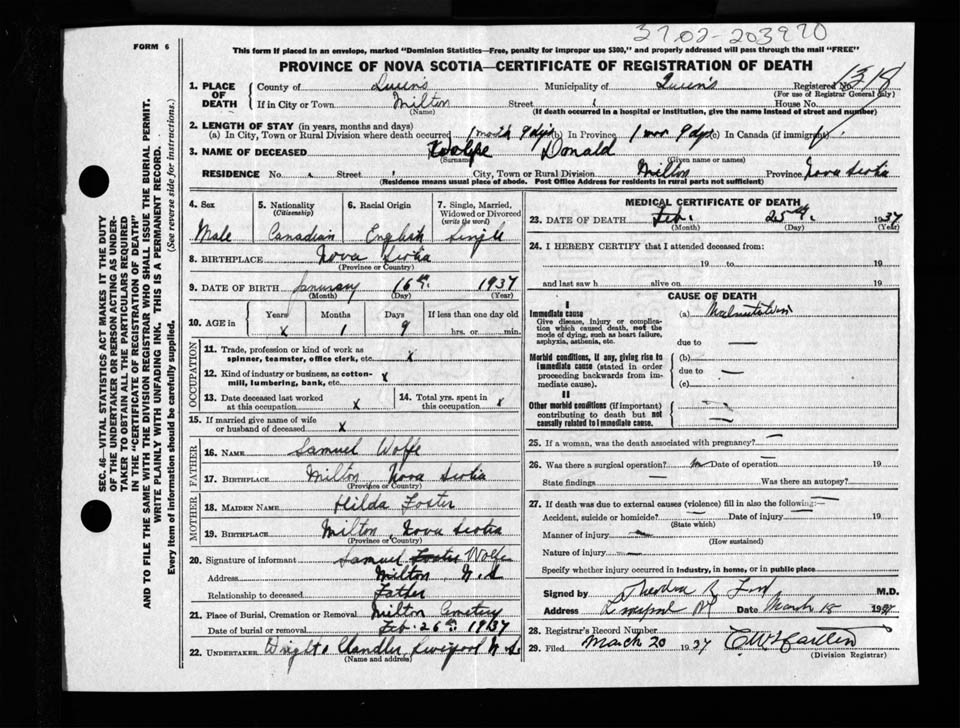 3702-203970
FORM 6
This form if placed in an envelope, marked "Dominion Statistics—Free, penalty for improper use $300," and properly addressed will pass through the mail "FREE"
PROVINCE OF NOVA SCOTIA—CERTIFICATE OF REGISTRATION OF DEATH
1. PLACE OF DEATH
County of Queen's Municipality of Queen's Registered No.
(For use of Registrar General only)
If in City or Town Milton Street House No.
(Name) (If death occurred in a hospital or institution, give the name instead of street and number)
2. LENGTH OF STAY (in years, months and days)
(a) In City, Town or Rural Division where death occurred 1 month 9 dys (b) In Province 1 mon 9 dys (c) In Canada (if immigrant)
3. NAME OF DECEASED Wolfe Donald
(Surname) (Given name or names)
RESIDENCE No. Street City, Town or Rural Division Milton Province Nova Scotia
(Residence means usual place of abode. Post Office Address for residents in rural parts not sufficient)
4. Sex Male
5. Nationality (Citizenship) Canadian
6. Racial Origin English
7. Single, Married, Widowed or Divorced (write the word) Single
8. BIRTHPLACE Nova Scotia
(Province or Country)
9. DATE OF BIRTH January 16th 1937
(Month) (Day) (Year)
10. AGE in Years x Months 1 Days 9 If less than one day old hrs. or min.
OCCUPATION
11. Trade, profession or kind of work as spinner, teamster, office clerk, etc. x
12. Kind of industry or business, as cotton-mill, lumbering, bank, etc. x
13. Date deceased last worked at this occupation x
14. Total yrs. spent in this occupation x
15. If married give name of wife or husband of deceased x
FATHER
16. NAME Samuel Wolfe
17. BIRTHPLACE Milton Nova Scotia
(Province or Country)
MOTHER
18. MAIDEN NAME Hilda Foster
19. BIRTHPLACE Milton, Nova Scotia
(Province or Country)
20. Signature of informant Samuel Foster Wolfe
Address Milton N.S
Relationship to deceased Father
21. Place of Burial, Cremation or Removal Milton Cemetery
Date of burial or removal Feb. 26th 1937
22. UNDERTAKER Wright & Chandler, Liverpool N.S.
(Name and address)
MEDICAL CERTIFICATE OF DEATH
23. DATE OF DEATH Feb. 25th. 1937
(Month) (Day) (Year)
24. I HEREBY CERTIFY that I attended deceased from:
19 to 19
and last saw h alive on 19
CAUSE OF DEATH
I
Immediate cause (a) Malnutrition
Give disease, injury or complication which caused death, not the mode of dying, such as heart failure, asphyxia, asthenia, etc.
due to —
Morbid conditions, if any, giving rise to immediate cause (stated in order proceeding backwards from immediate cause).
(b)
due to —
(c)
II
Other morbid conditions (if important) contributing to death but not causally related to immediate cause.
25. If a woman, was the death associated with pregnancy? —
26. Was there a surgical operation? no Date of operation — 19
State findings — Was there an autopsy?
27. If death was due to external causes (violence) fill in also the following:—
Accident, suicide or homicide? — Date of injury — 19
(State which)
Manner of injury —
(How sustained)
Nature of injury —
Specify whether injury occurred in industry, in home, or in public place
Signed by M.D.
Address Liverpool NS Date March 18 1937
28. Registrar's Record Number
29. Filed March 20 1937
(Division Registrar)
SEC. 46—VITAL STATISTICS ACT MAKES IT THE DUTY
OF THE UNDERTAKER OR PERSON ACTING AS UNDER-
TAKER TO OBTAIN ALL THE PARTICULARS REQUIRED
IN THE "CERTIFICATE OF REGISTRATION OF DEATH"
AND TO FILE THE SAME WITH THE DIVISION REGISTRAR WHO SHALL ISSUE THE BURIAL PERMIT.
WRITE PLAINLY WITH UNFADING INK. THIS IS A PERMANENT RECORD.
Every item of information should be carefully supplied. (See reverse side for instructions.)